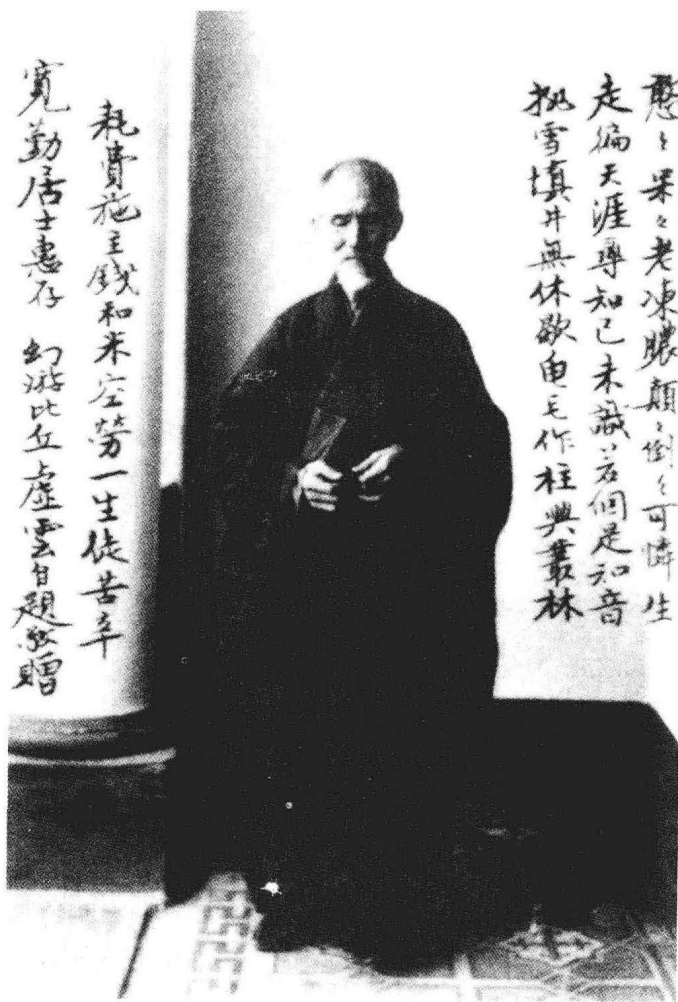 憨々呆々老凍膿顛々倒々可憐生
走徧天涯尋知己未識若個是知音
挑雪填井無休歇龜毛作柱興叢林
耗費施主錢和米空勞一生徒苦辛
寬勤居士惠存 幻游比丘虛雲自題敬贈